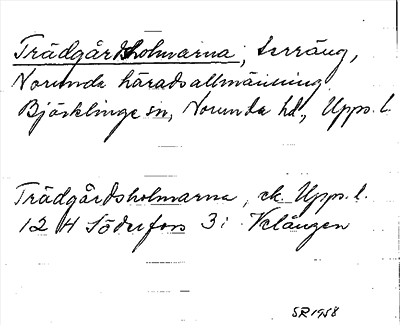 Trädgårdsholmarna, terräng,
Norunda häradsallmänning
Björklinge sn, Norunda hd., Upps. l.
Trädgårdsholmarna, ek. Upps. l.
12 4 Söderfors 3i
SR 1958